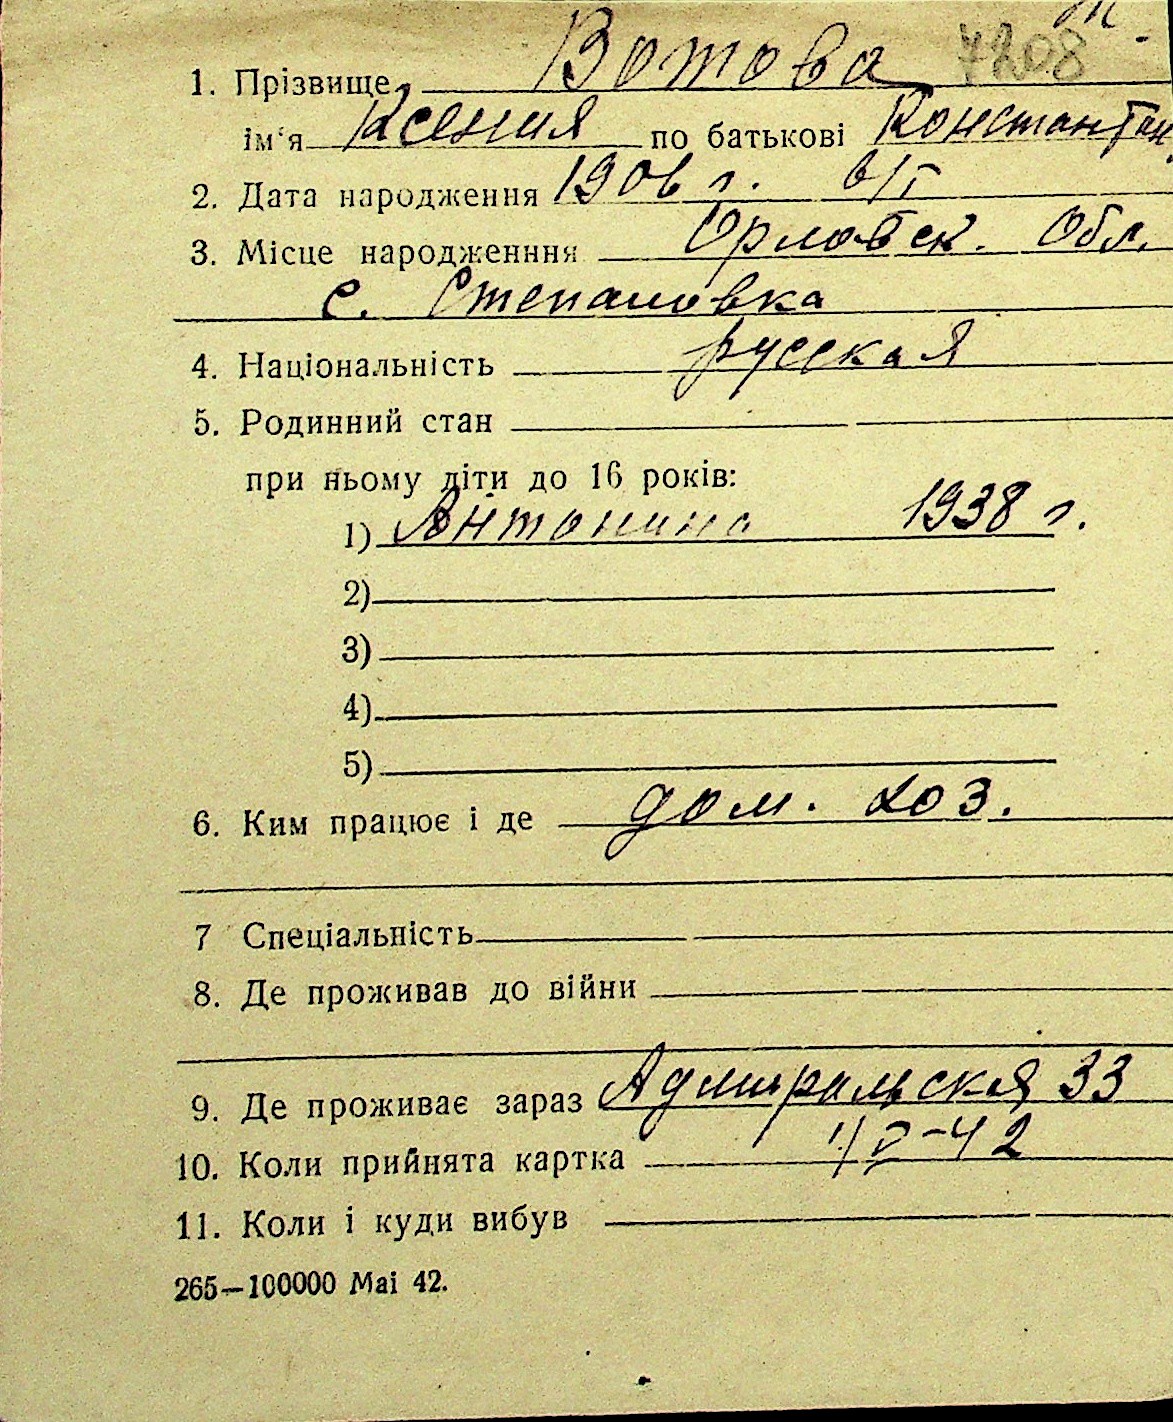 7208
1. Прізвище Вотова
ім'я Ксения по батькові Константин.
2. Дата народження 1906 г. 6/I
3. Місце народженння Орловск. Обл.
с. Степановка
4. Національність русская
5. Родинний стан
при ньому діти до 16 років:
1) Антонина 1938 г.
2)
3)
4)
5)
6. Ким працює і де дом. хоз.
7 Спеціальність
8. Де проживав до війни
9. Де проживає зараз Адмиральская 33
10. Коли прийнята картка
11. Коли і куди вибув
265—100000 Маі 42.